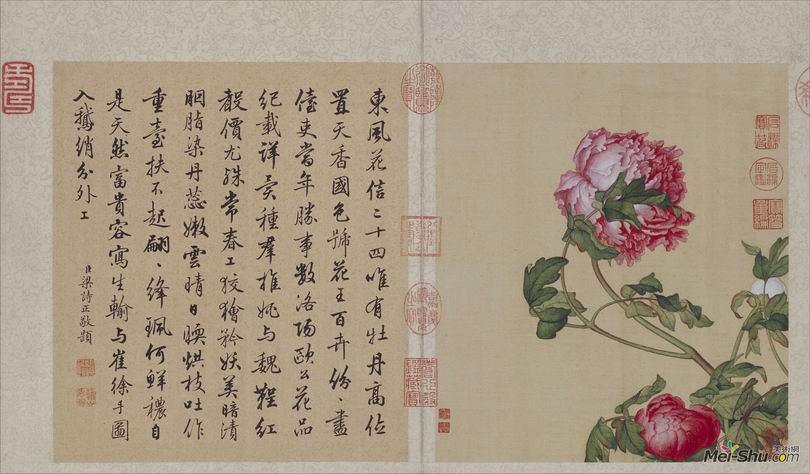 東風花信二十四唯有牡丹高位
置天香國色號花王百卉份〻盡
儓吏當年勝事數洛陽歐公花品
紀載詳異種羣推姚與魏鞓紅
價尤殊常春工狡獪矜妖美暗漬
胭脂染丹蕊嫩雲晴日暎烘枝吐作
重臺扶不起翩〻絳珮何鮮穠自
是天然富貴容寫生輸与崔徐手圖
入鵞綃分外工
臣梁詩正敬題
美術網
Mei-Shu.com